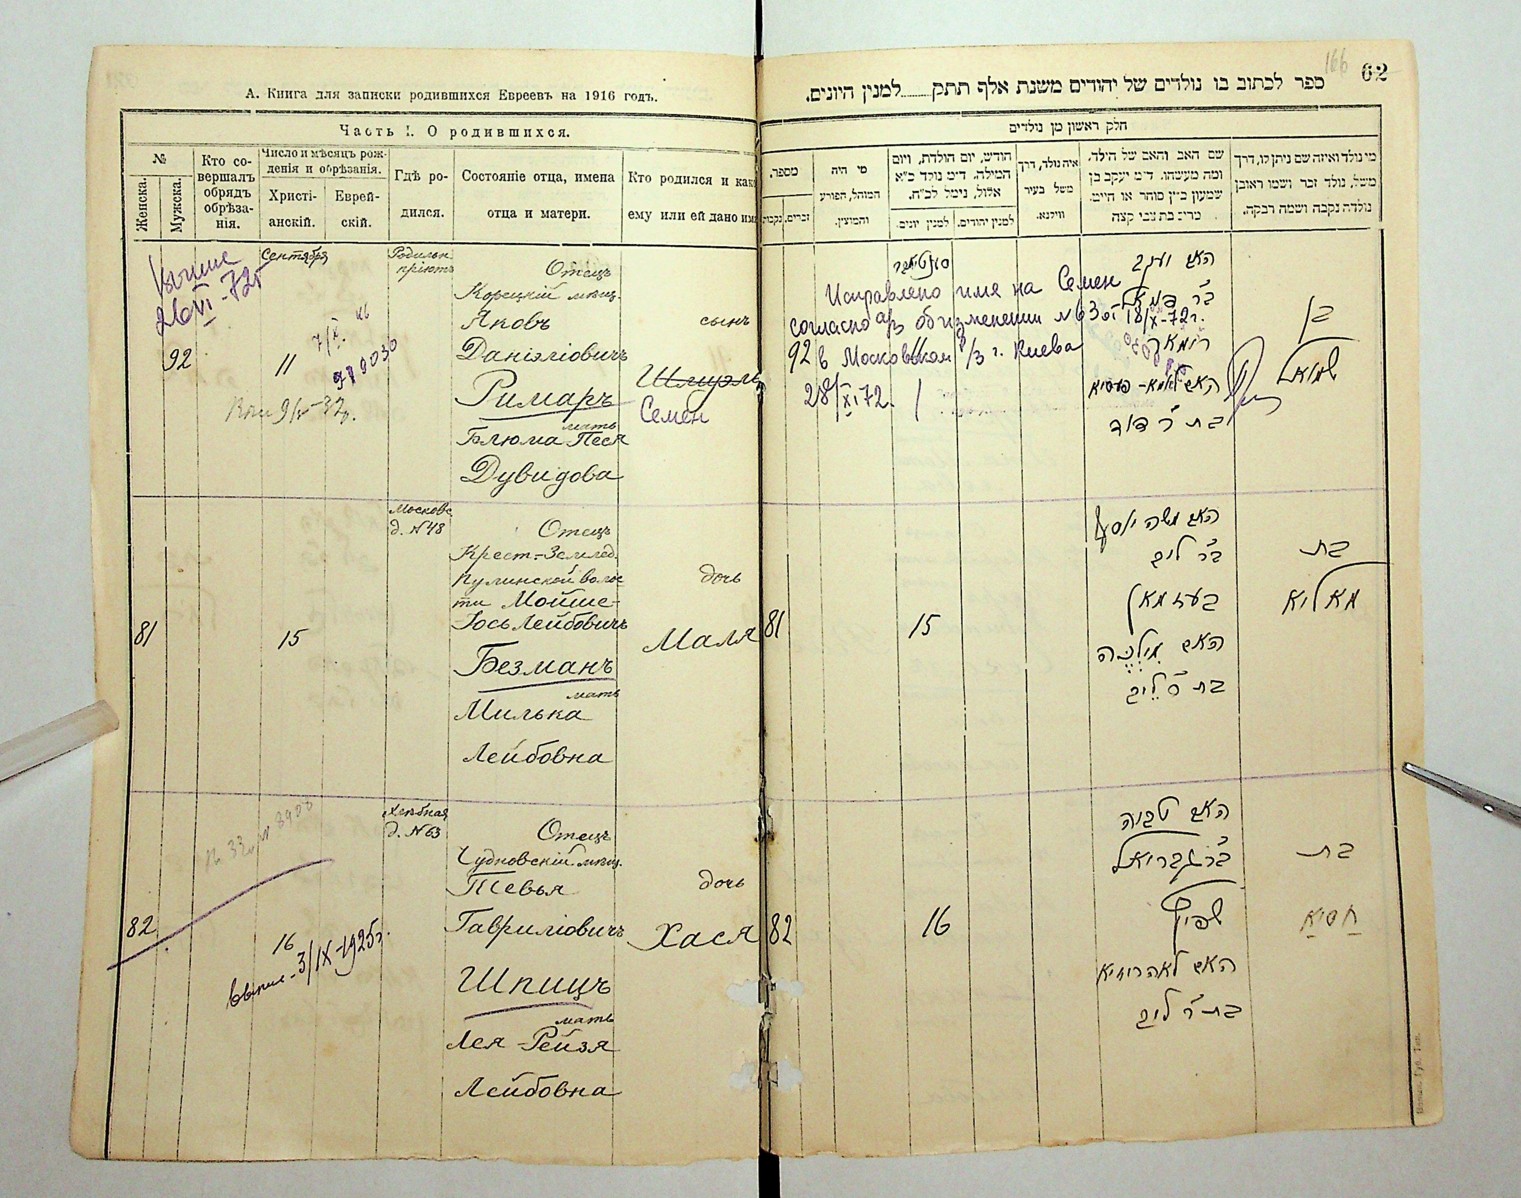 А. Книга для записки родившихся Евреевъ на 1916 годъ.
Часть I. О родившихся.
№
Женска.
Мужска.
Кто со-
вершалъ
обрядъ
обрѣза-
нія.
Число и мѣсяцъ рож-
денія и обрѣзанія.
Христі-
анскій.
Еврей-
скій.
Гдѣ ро-
дился.
Состояніе отца, имена
отца и матери.
Кто родился и как
ему или ей дано им
Сентября
Родильн.
пріютъ
Отецъ
Корецкій мѣщ.
Яковъ
сынъ
Даніэліовичъ
92
11
Римаръ
Шмуэль
Семен
мать
Блюма Песя
Дувидова
Московс.
д. №48
Отецъ
Крест-Землед.
Кулинской волос
ти Мойше-
дочь
Іось Лейбовичъ
81
15
Маля
Безманъ
мать
Милька
Лейбовна
Хлѣбная
д. №63
Отецъ
Чудновскій мѣщ.
Тевья
дочь
82
16
Гавриліовичъ
Хася
3/IX-1925г.
Шпицъ
мать
Лея-Рейзя
Лейбовна
166
62
ספר לכתוב בו נולדים של יהודים משנת אלף תתק למנין היונים.
חלק ראשון מן נולדים
מספר.
נקבות.
זכרים.
מי היה
המוהל, הפורע
והמוצץ.
חודש, יום הולדת, ויום
המילה. ד״מ נולד כ״א
אלול, נימל לכ״ח.
למנין יונים.
למנין יהודים.
איה נולד, דרך
משל בעיר
ווילנא.
שם האב והאם של הילד,
ומה מעשהו. ד״מ יעקב בן
שמעון כ״ץ סוחר או חייט.
מרים בת צבי קצה
מי נולד ואיזה שם ניתן לו, דרך
משל, נולד זכר ושמו ראובן
נולדה נקבה ושמה רבקה.
Исправлено имя на Семен
согласно а/з об изменении №630 от 18/X-72г.
92
11
в Московском р/з г. Киева
28/XI 72.
האב יעקב
בן
שמואל
בת ר׳ דוד
האב משה יאסעל
ב״ר ליב
בת
בעזמאן
מאליא
81
15
האם מילכה
בת ר׳ ליב
האב טביה
ב״ר גבריאל
בת
שפיץ
חסיא
82
16
האם לאה רייזא
בת ר׳ ליב
Волын. Губ. Тип.